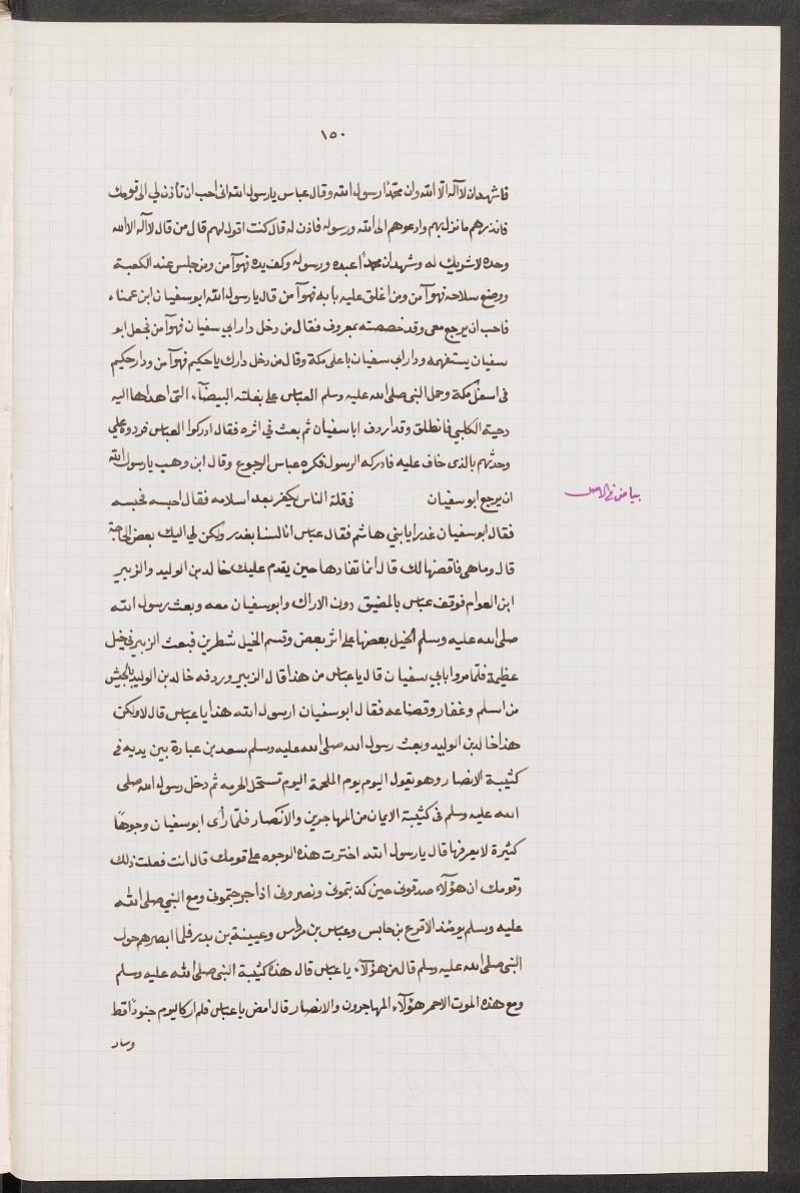 ١٥٠
فاشهد ان لا آله الا الله وان محمدًا رسول الله وقال عباس يا رسول الله انى احب ان تأذن لي الى قومك
فانذرهم ما نزل بهم وادعوهم الى الله ورسوله فاذن له قال كنت اقول لهم قال من قال لا آله الا الله
وحده لا شريك له وشهد ان محمدًا عبده ورسوله وكف يده فهوآمن ومن جلس عند الكعبة
ووضع سلاحه فهوآمن ومن اغلق عليه بابه فهوآمن قال يا رسول الله ابو سفيان ابن عمناء
فاحب ان يرجع معى وقد خصصته بمعروف فقال من دخل دار ابي سفيان فهوآمن فجعل ابو
سفيان يستفهمه ودار ابي سفيان باعلى مكة وقال من دخل دارك يا حكيم فهوآمن ودار حكيم
فى اسفل مكة وحمل النبى صلى الله عليه وسلم العباس على بغلته البيضآء التى اهداها اليه
دحية الكلبي فانطلق وقد اردف ابا سفيان ثم بعث في اثره فقال ادركوا العباس فردوه علي
وحدثهم بالذى خاف عليه فادركه الرسول فكره عباس الرجوع وقال ابن وهب يا رسول الله
ان يرجع ابو سفيان فى قلة الناس يكفر بعد اسلامه فقال احبسه فحبسه
بياض في الاصل
فقال ابو سفيان غدرا يا بني هاشم فقال عباس انا لسنا بغدر ولكن لي اليك بعض الحاجة
قال وما هى فاقضها لك قال انما نفادها حين يقدم عليك خالد بن الوليد والزبير
ابن العوام فوقف عباس بالمضيق دون الاراك وابو سفيان معه وبعث رسول الله
صلى الله عليه وسلم الخيل بعضها على اثر بعض وقسم الخيل شطرين فبعث الزبير في خيل
عظيمة فلما مروا بابي سفيان قال يا عباس من هذا قال الزبير وردفه خالد بن الوليد بالجيش
من اسلم وغفار وقضاعه فقال ابو سفيان ارسول الله هذا يا عباس قال لا ولكن
هذا خالد بن الوليد وبعث رسول الله صلى الله عليه وسلم سعد بن عبادة بين يديه فى
كتيبة الانصار وهو يقول اليوم يوم الملحمة اليوم تستحل الحرمه ثم دخل رسول الله صلى
الله عليه وسلم فى كتيبة الايمان من المهاجرين والانصار فلما رأى ابو سفيان وجوهًا
كثيرة لا يعرفها قال يا رسول الله اخترت هذه الوجوه على قومك قال انت فعلت ذلك
وقومك ان هؤلآء صدقونى حين كذبتمونى ونصرونى اذ اخرجتمونى ومع النبي صلى الله
عليه وسلم يومئذ الاقرع بن حابس وعباس بن مرداس وعيينة بن بدر فلما ابصرهم حول
النبى صلى الله عليه وسلم قال من هؤلآء يا عباس قال هذه كتيبة النبى صلى الله عليه وسلم
ومع هذه الموت الاحمر هؤلآء المهاجرون والانصار قال امض يا عباس فلم ار كاليوم جنودًا قط
وساد